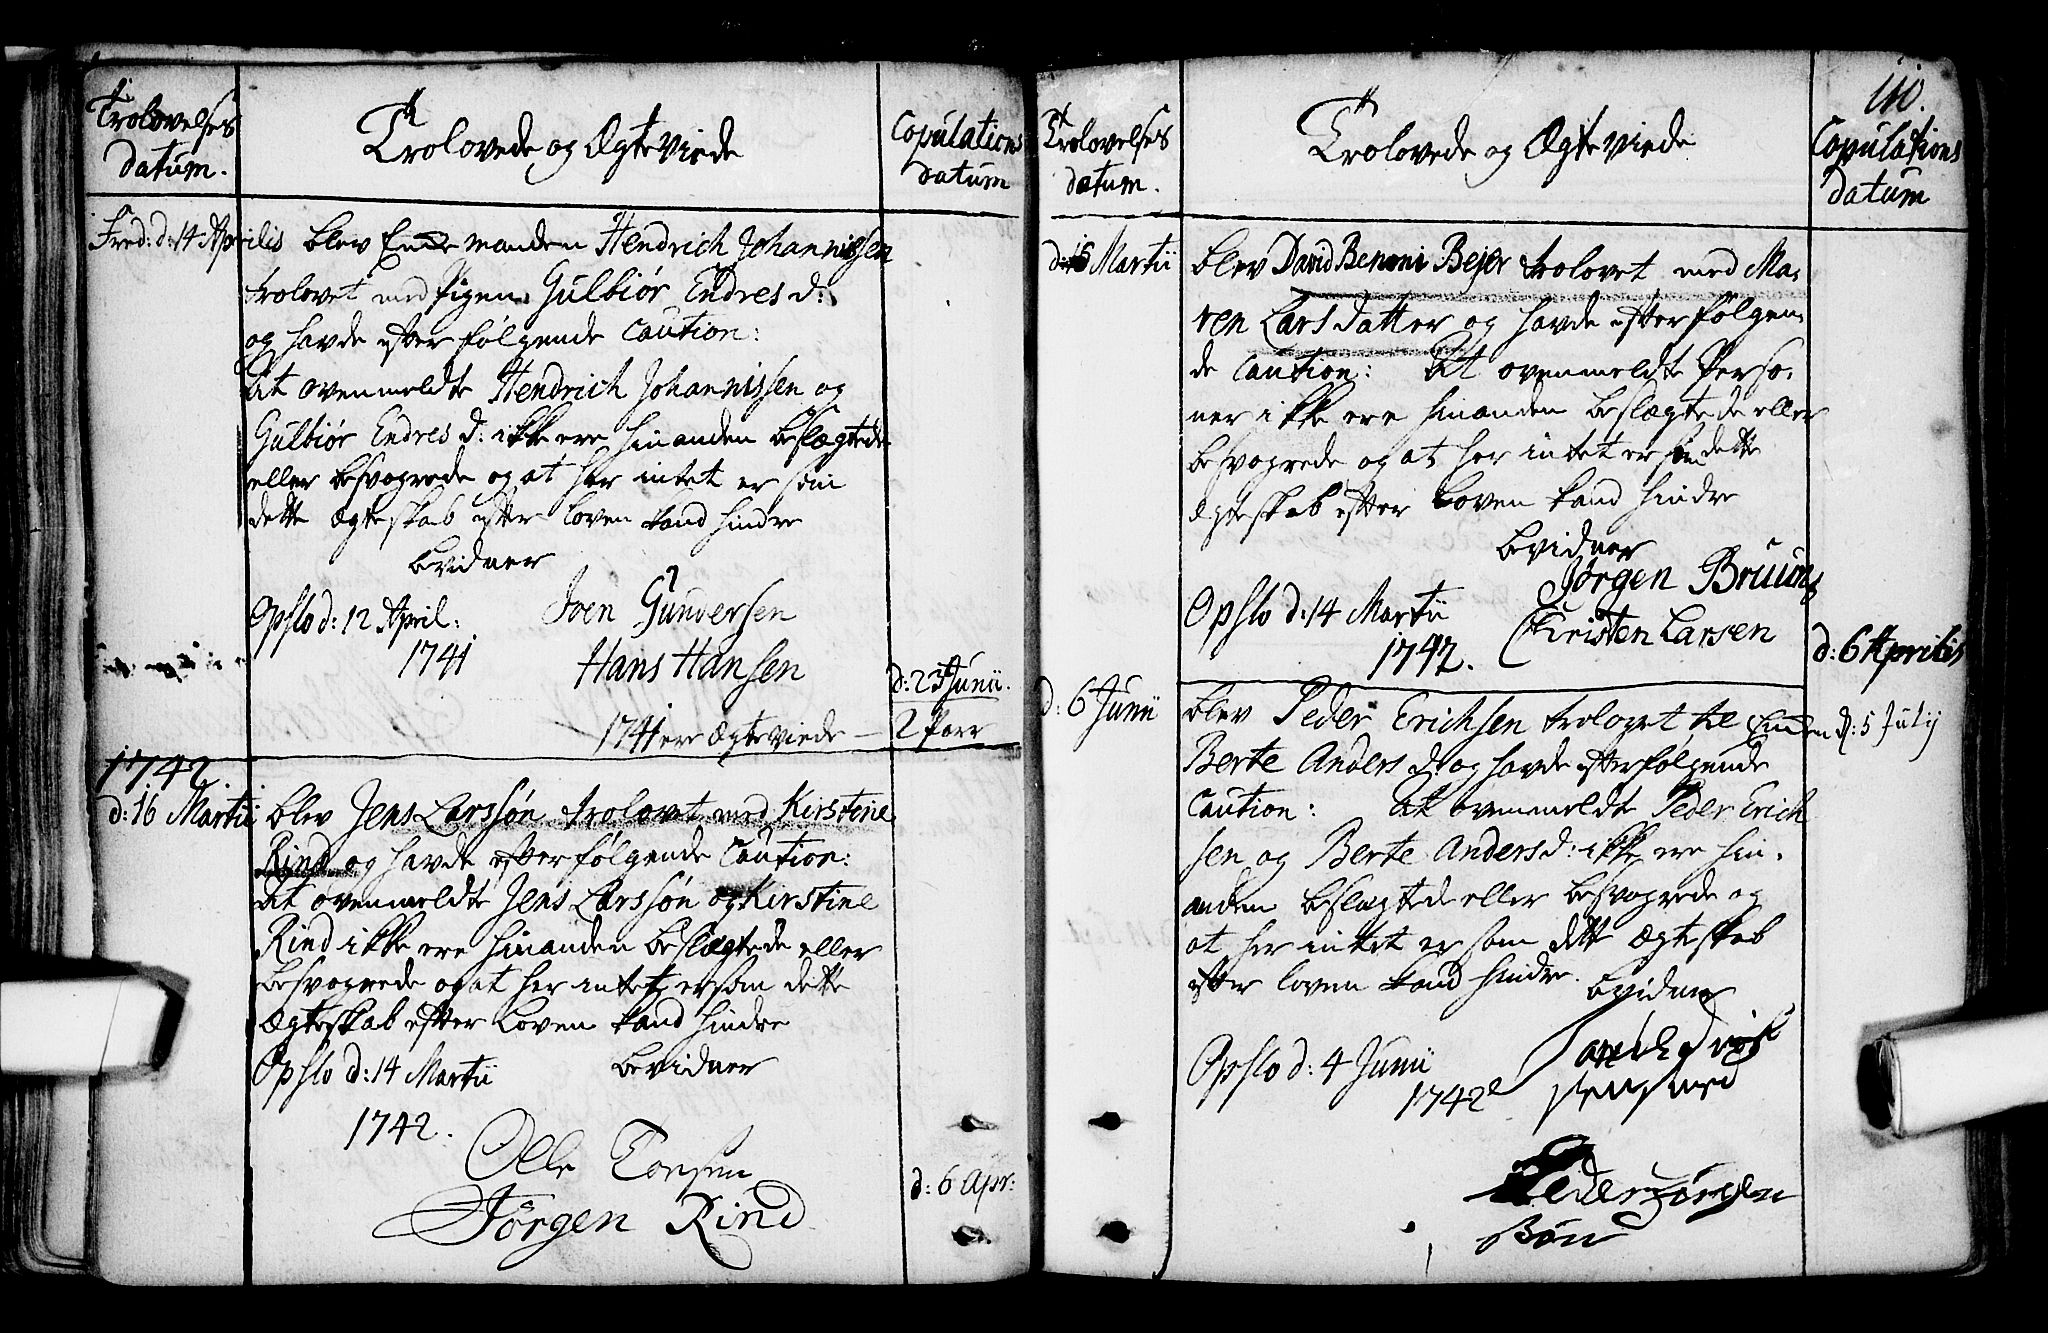 Trolovelses
datum.
Trolovede og Ægteviede
Copulations
datum
Fred: d: 14 Aprilis blev Enke manden Hendrich Johannissen
trolovet med Pigen Gulbiør Endres d:
og havde efterfølgende Caution:
At ovenmeldte Hendrich Johannissen og
Gulbiør Endres d: ikke ere hinanden beslægtede
eller besvogrede og at her intet er som
dette Ægteskab efter loven kand hindre
bevidner
Opslo d: 12 April:
1741
Joen Gundersen
Hans Hansen
d: 23 Junii.
1741 ere Ægteviede — 2 Parr
1742
d: 16 Martii blev Jens Larssøn trolovet med Kirstine
Rind og havde efterfølgende Caution:
At ovenmeldte Jens Larssøn og Kirstine
Rind ikke ere hinanden beslægtede eller
besvogrede og at her intet er som dette
Ægteskab efter Loven kand hindre
Opslo d: 14 Martii
bevidner
1742.
Olle Torsen
Jørgen Rind
d: 6 Apr:
110.
Trolovelses
datum.
Trolovede og Ægteviede
Copulations
datum
d: 16 Martii
blev David Benoni Bejer trolovet med Ma-
ren Lars Datter og havde efterfølgen-
de Caution: At ovenmeldte Perso-
ner ikke ere hinanden beslægtede eller
besvogrede og at her intet er som dette
Ægteskab efter Loven kand hindre
bevidner
Jørgen Bruun
Opslo d: 14 Martii
1742.
Christen Larsen
d: 6 Aprilis
d: 6 Junii
blev Peder Erichsen trolovet til Enken
d: 5 Julij
Berte Anders d: og havde efterfølgende
Caution: At ovenmeldte Peder Erich
sen og Berte Anders d: ikke ere hin-
anden beslægtede eller besvogrede og
at her intet er som dette Ægteskab
efter loven kand hindre.
bevidner
Opslo d: 4 Junii
1742
Peder Jørgen